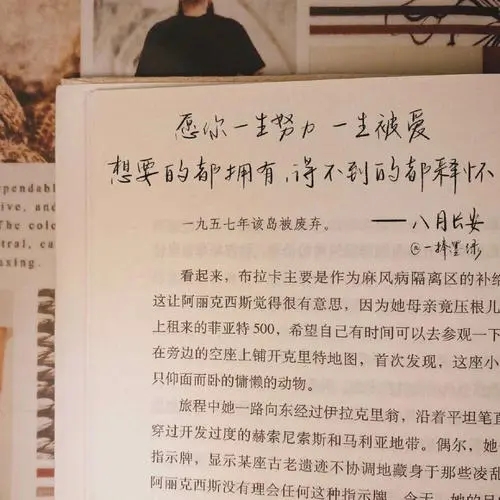 愿你一生努力 一生被爱
想要的都拥有,得不到的都释怀
——八月长安
@一择墨绿
一九五七年该岛被废弃。
看起来,布拉卡主要是作为麻风病隔离区的补给
这让阿丽克西斯觉得很有意思,因为她母亲竟压根儿
上租来的菲亚特 500,希望自己有时间可以去参观一下
在旁边的空座上铺开克里特地图,首次发现,这座小
只仰面而卧的慵懒的动物。
旅程中她一路向东经过伊拉克里翁,沿着平坦笔直
穿过开发过度的赫索尼索斯和马利亚地带。偶尔,她
指示牌,显示某座古老遗迹不协调地藏身于那些凌乱
阿丽克西斯没有理会任何这种指示牌。今天,她的目
ependable
ive, and
The colo
tral, ca
axing.